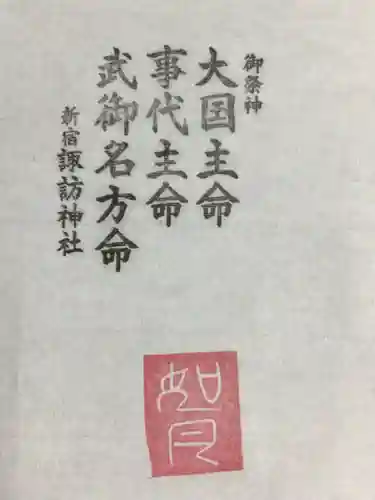 御祭神
大国主命
事代主命
武御名方命
新宿諏訪神社
如月